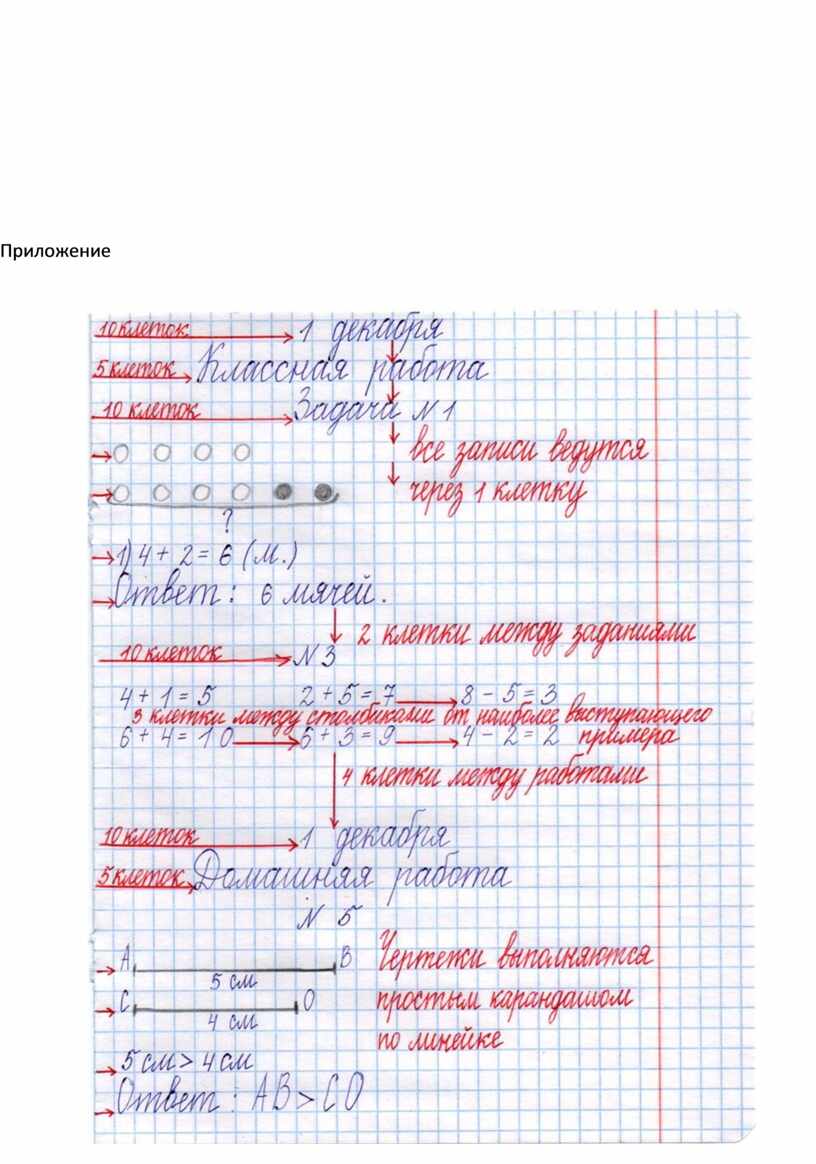 Приложение
10 клеток 1 декабря
5 клеток Классная работа
10 клеток Задача № 1
все записи ведутся
через 1 клетку
?
1) 4 + 2 = 6 (м.)
Ответ: 6 мячей.
2 клетки между заданиями
10 клеток № 3
4 + 1 = 5 2 + 5 = 7 8 - 5 = 3
3 клетки между столбиками от наиболее выступающего
6 + 4 = 10 6 + 3 = 9 4 - 2 = 2 примера
4 клетки между работами
10 клеток 1 декабря
5 клеток Домашняя работа
№ 5
А В Чертежи выполняются
5 см
С О простым карандашом
4 см
по линейке
5 см > 4 см
Ответ: АВ > СО